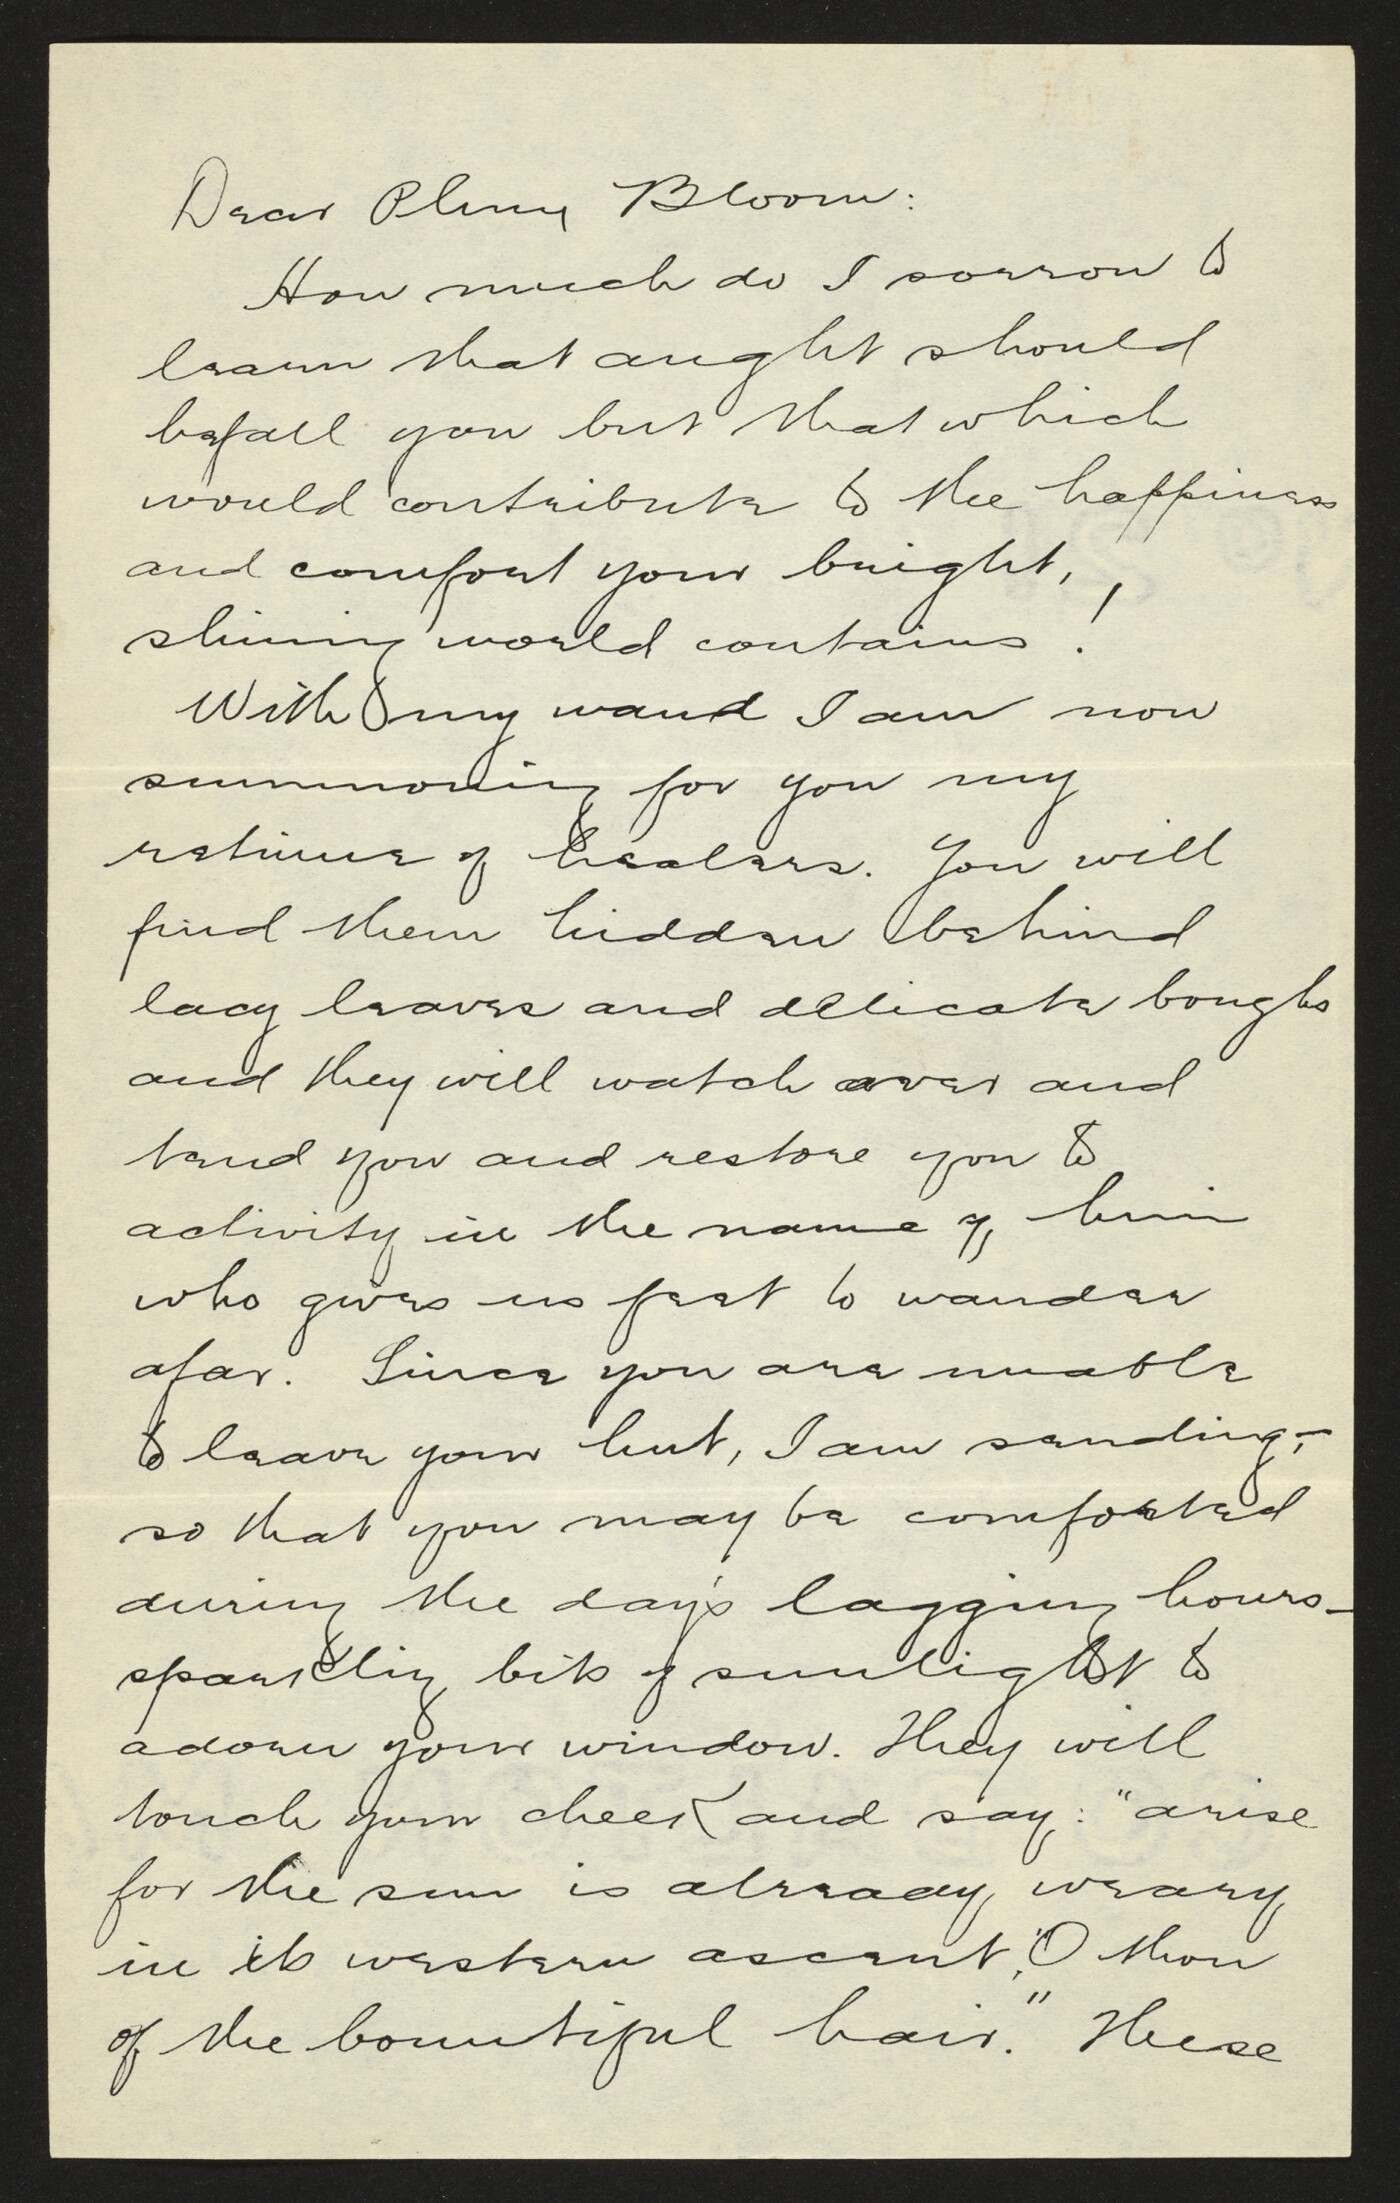 Dear Plum Bloom:
How much do I sorrow to
learn that aught should
befall you but that which
would contribute to the happiness
and comfort your bright,
shining world contains!
With my wand I am now
summoning for you my
retinue of healers. You will
find them hidden behind
lacy leaves and delicate boughs
and they will watch over and
tend you and restore you to
activity in the name of him
who gives us feet to wander
afar. Since you are unable
to leave your hut, I am sending,—
so that you may be comforted
during the day's lagging hours—
sparkling bits of sunlight to
adorn your window. They will
touch your cheek and say: "arise
for the sun is already weary
in its western ascent, O thou
of the bountiful hair." These